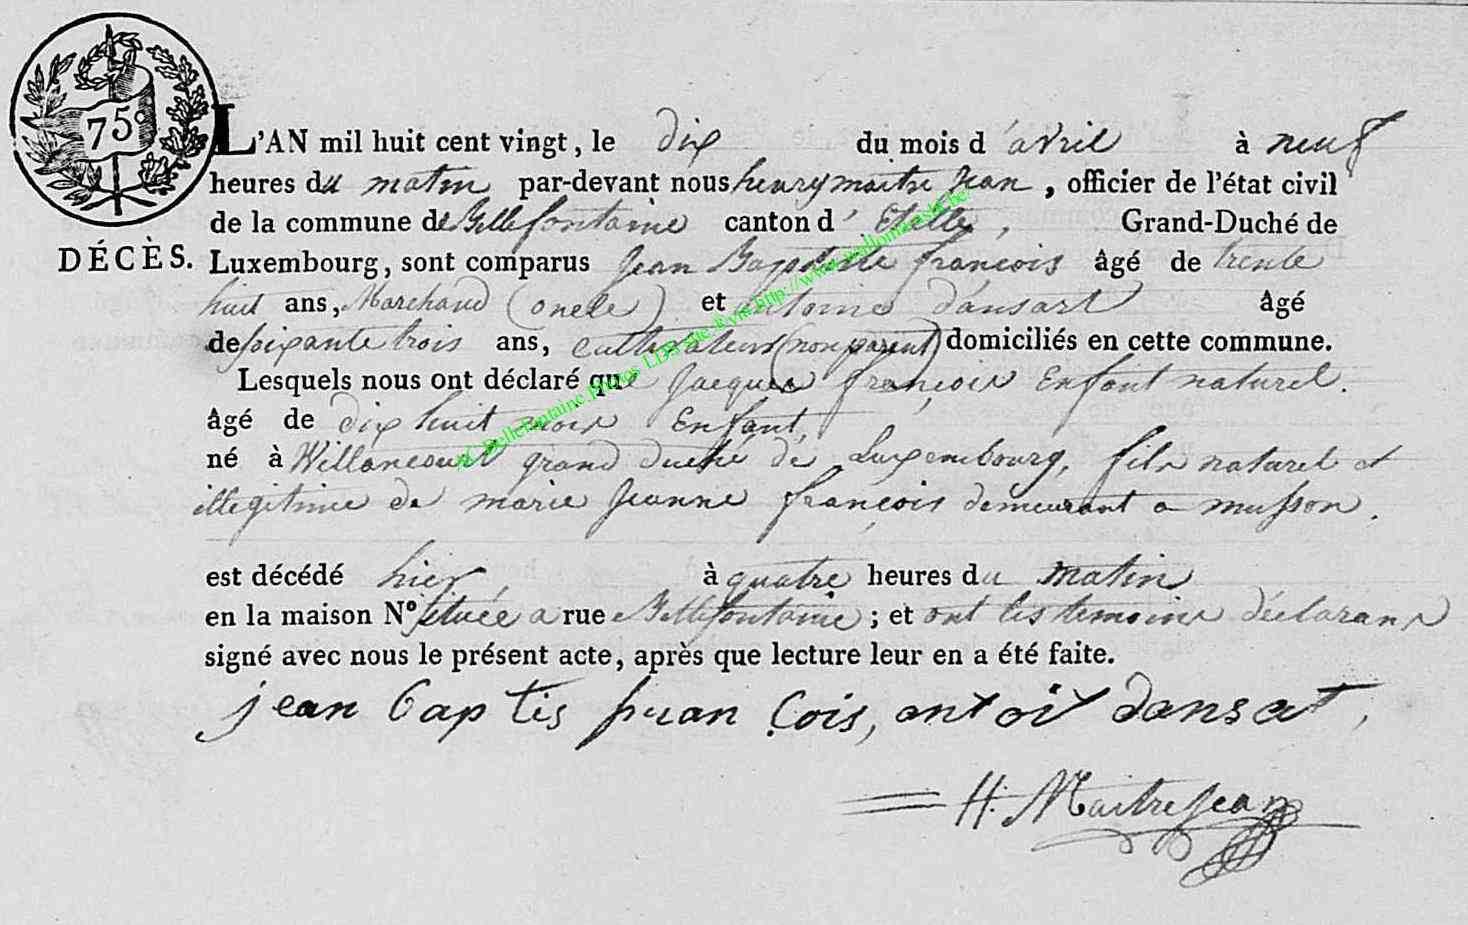 75c
L'AN mil huit cent vingt, le dix du mois d'avril à neuf
heures du matin par-devant nous henry maitre Jean, officier de l'état civil
de la commune de Bellefontaine canton d'Etalle, Grand-Duché de
DÉCÈS. Luxembourg, sont comparus Jean Baptiste françois âgé de trente
huit ans, Marchand (oncle) et antoine dansart âgé
de soixante trois ans, cultivateur (non parent) domiciliés en cette commune.
Lesquels nous ont déclaré que Jacques françois Enfant naturel.
âgé de dix huit mois Enfant,
né à Willancourt grand duché de Luxembourg, fils naturel et
illegitime de marie Jeanne françois demeurant a musson.
est décédé hier à quatre heures du matin
en la maison N° située a rue Bellefontaine ; et ont les temoins déclarans
signé avec nous le présent acte, après que lecture leur en a été faite.
jean baptis fruan çois, antoi dansat,
H. Maitrejean